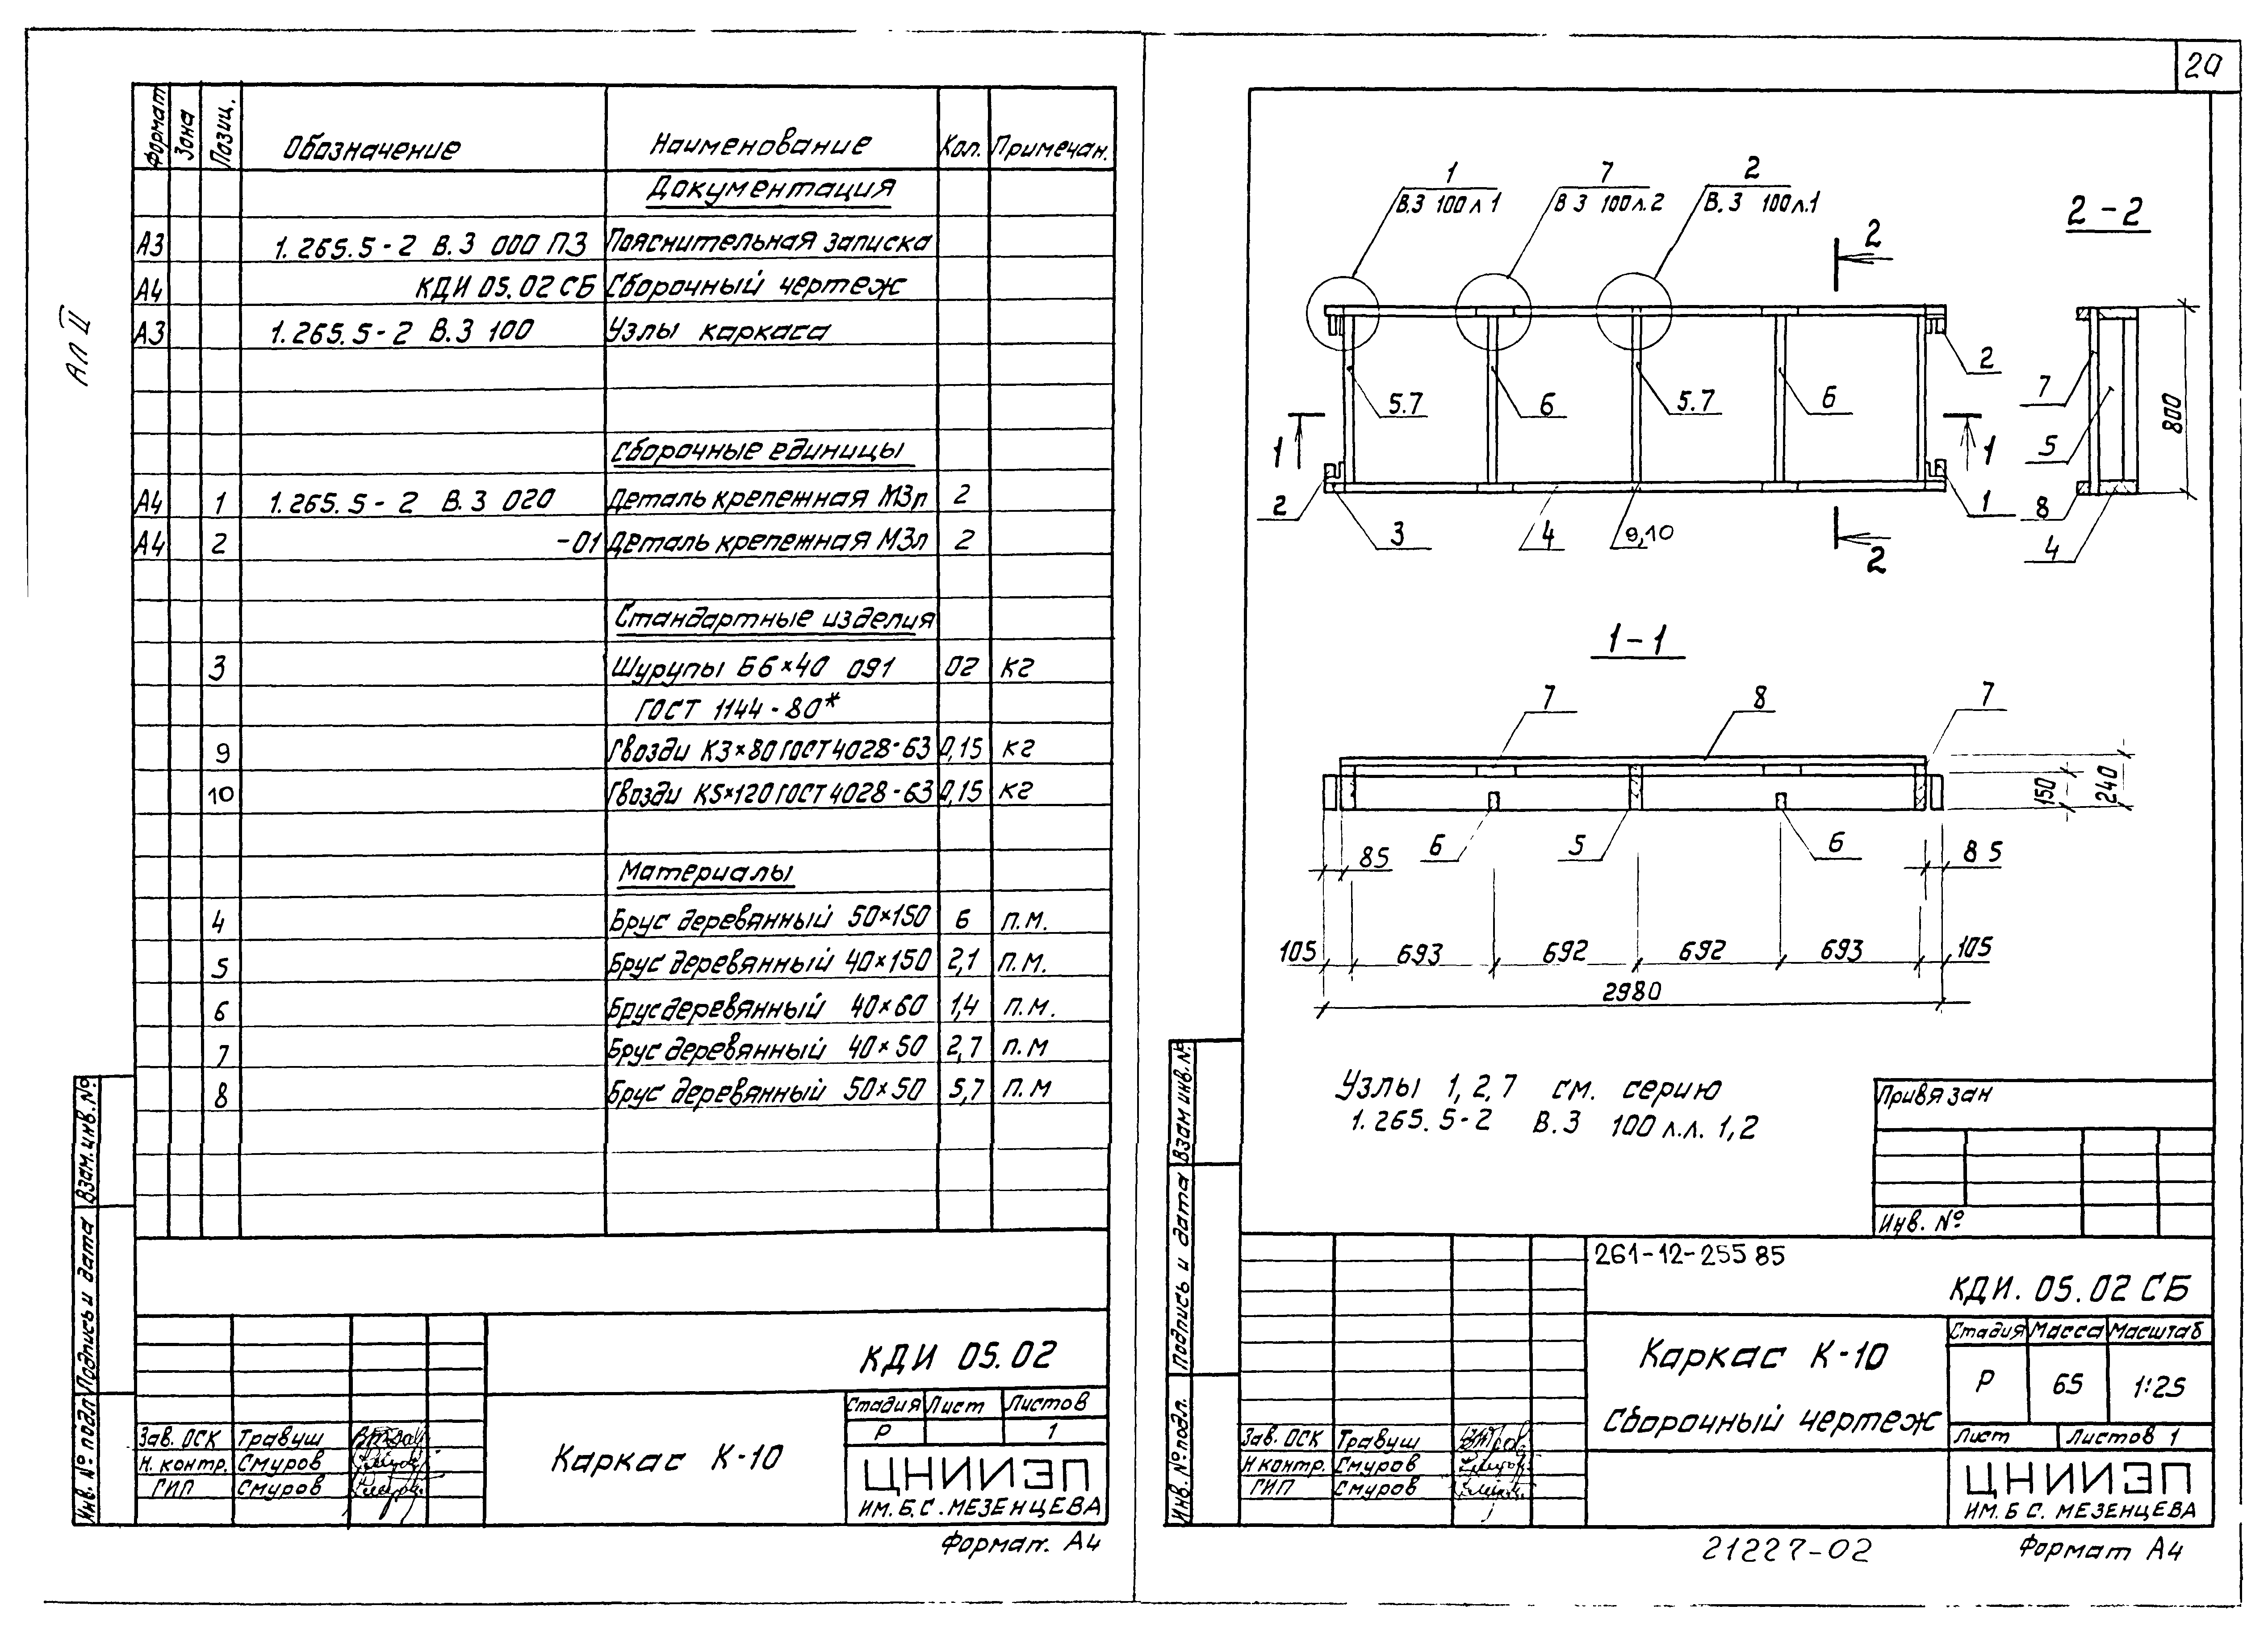 АЛ II
Формат Зона Позиц. Обозначение Наименование Кол. Примечан.
Документация
А3 1.265.5-2 В.3 000 ПЗ Пояснительная записка
А4 КДИ 05.02 СБ Сборочный чертеж
А3 1.265.5-2 В.3 100 Узлы каркаса
Сборочные единицы
А4 1 1.265.5-2 В.3 020 Деталь крепежная МЗп 2
А4 2 -01 Деталь крепежная МЗл 2
Стандартные изделия
3 Шурупы Б6×40 091 02 кг
ГОСТ 1144-80*
9 Гвозди К3×80 ГОСТ 4028-63 0,15 кг
10 Гвозди К5×120 ГОСТ 4028-63 0,15 кг
Материалы
4 Брус деревянный 50×150 6 п.м.
5 Брус деревянный 40×150 2,1 п.м.
6 Брус деревянный 40×60 1,4 п.м.
7 Брус деревянный 40×50 2,7 п.м
8 Брус деревянный 50×50 5,7 п.м
Инв. № подл. Подпись и дата Взам. инв. №
КДИ 05.02
Зав. ОСК Травуш
Н. контр. Смуров
ГИП Смуров
Каркас К-10
Стадия Лист Листов
Р 1
ЦНИИЭП
ИМ. Б.С. МЕЗЕНЦЕВА
Формат. А4
20
1
В.3 100 л 1
7
В 3 100 л.2
2
В.3 100 л.1
2
2-2
5.7 6 5.7 6 2
1 1
2 3 4 9,10 1
2
7 5 8 4
800
1-1
7 8 7
150 240
6 5 6
85 85
105 693 692 692 693 105
2980
Узлы 1,2,7 см. серию
1.265.5-2 В.3 100 л.л. 1,2
Привязан
Инв. №
Инв. № подл. Подпись и дата Взам инв. №
261-12-255 85
КДИ. 05.02 СБ
Каркас К-10
Сборочный чертеж
Стадия Масса Масштаб
Р 65 1:25
Лист Листов 1
Зав. ОСК Травуш
Н контр. Смуров
ГИП Смуров
ЦНИИЭП
ИМ. Б С. МЕЗЕНЦЕВА
21227-02
Формат А4